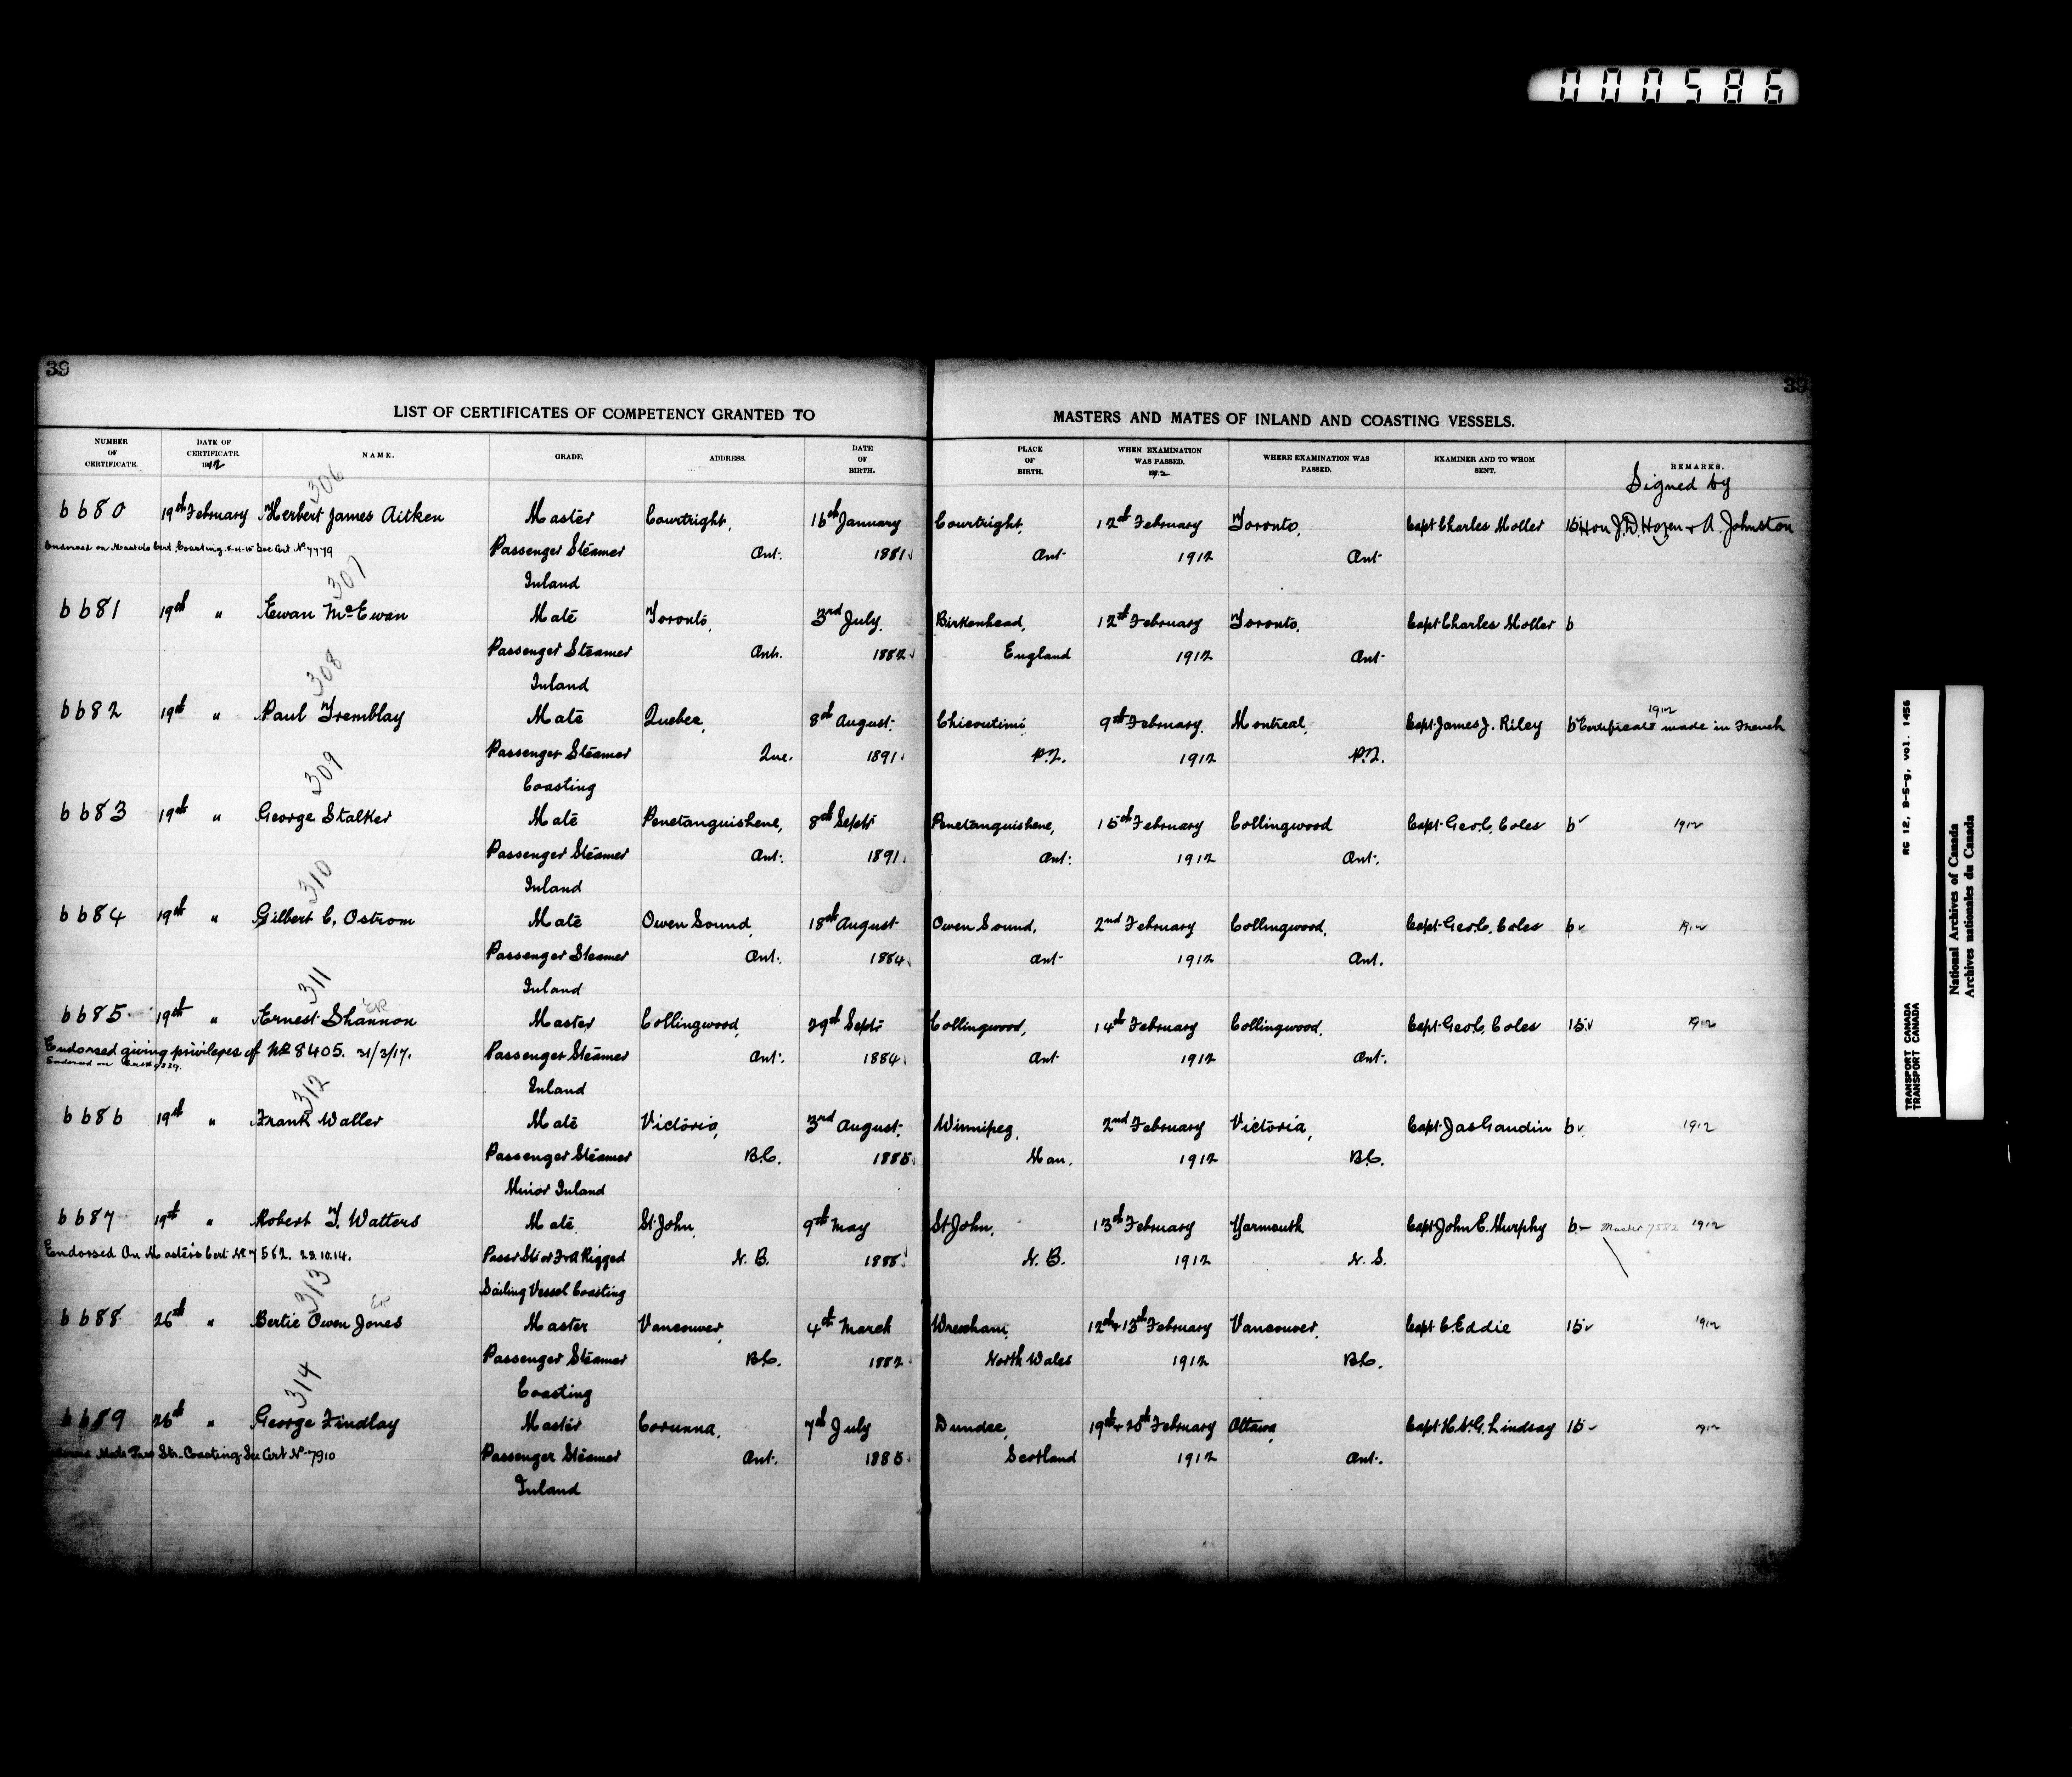 000586
39
39
LIST OF CERTIFICATES OF COMPETENCY GRANTED TO MASTERS AND MATES OF INLAND AND COASTING VESSELS.
NUMBER OF CERTIFICATE. DATE OF CERTIFICATE. 1912 NAME. GRADE. ADDRESS. DATE OF BIRTH. PLACE OF BIRTH. WHEN EXAMINATION WAS PASSED. 1912 WHERE EXAMINATION WAS PASSED. EXAMINER AND TO WHOM SENT. REMARKS.
Signed by
306
6680 19th February Herbert James Aitken Master Courtright, 16th January Courtright, 12th February Toronto, Capt Charles Moller 15 Hon J.D. Hazen & A. Johnston
Endorsed on Masters Cert. Coasting. See Cert No 7779 Passenger Steamer Ont. 1881 Ont 1912 Ont
Inland
307
6681 19th " Ewan McEwan Mate Toronto, 3rd July. Birkenhead, 12th February Toronto. Capt Charles Moller 6
Passenger Steamer Ont. 1882 England 1912 Ont
Inland
308
6682 19th " Paul Tremblay Mate Quebec, 8th August. Chicoutimi 9th February Montreal, Capt James J. Riley 6 Certificate made in French 1912
Passenger Steamer Que. 1891 P.Q. 1912 P.Q.
Coasting
309
6683 19th " George Stalker Mate Penetanguishene, 8th Septr Penetanguishene, 15th February Collingwood Capt Geo. C. Coles 6 1912
Passenger Steamer Ont. 1891 Ont. 1912 Ont.
Inland
310
6684 19th " Gilbert C. Ostrom Mate Owen Sound, 18th August Owen Sound, 2nd February Collingwood, Capt Geo. C. Coles 6 1912
Passenger Steamer Ont. 1884 Ont 1912 Ont.
Inland
311
6685 19th " Ernest Shannon Master Collingwood, 29th Septr Collingwood, 14th February Collingwood, Capt Geo. C. Coles 15 1912
Endorsed giving privileges of No 8405. 31/3/17. Passenger Steamer Ont. 1884 Ont 1912 Ont.
Endorsed on
Inland
312
6686 19th " Frank Waller Mate Victoria, 3rd August. Winnipeg, 2nd February Victoria, Capt Jas Gaudin 6 1912
Passenger Steamer B.C. 1885 Man. 1912 B.C.
Minor Inland
6687 19th " Robert T. Watters Mate St John, 9th May St John, 13th February Yarmouth Capt John E. Murphy 6 Master 7582 1912
Endorsed On Masters Cert. No 7582. 23.10.14. Passr Str or F & A Rigged N.B. 1886 N.B. 1912 N.S.
Sailing Vessel Coasting
313
6688 26th " Bertie Owen Jones Master Vancouver, 4th March Wrexham, 12th & 13th February Vancouver, Capt C. Eddie 15 1912
Passenger Steamer B.C. 1882 North Wales 1912 B.C.
Coasting
314
6689 26th " George Findlay Master Corunna, 7th July Dundee, 19th & 20th February Ottawa, Capt H. St G. Lindsay 15 1912
Mate Pass Str. Coasting. See Cert No 7910 Passenger Steamer Ont. 1885 Scotland 1912 Ont.
Inland
RG 12, B-5-g, vol. 1456
TRANSPORT CANADA
TRANSPORT CANADA
National Archives of Canada
Archives nationales du Canada